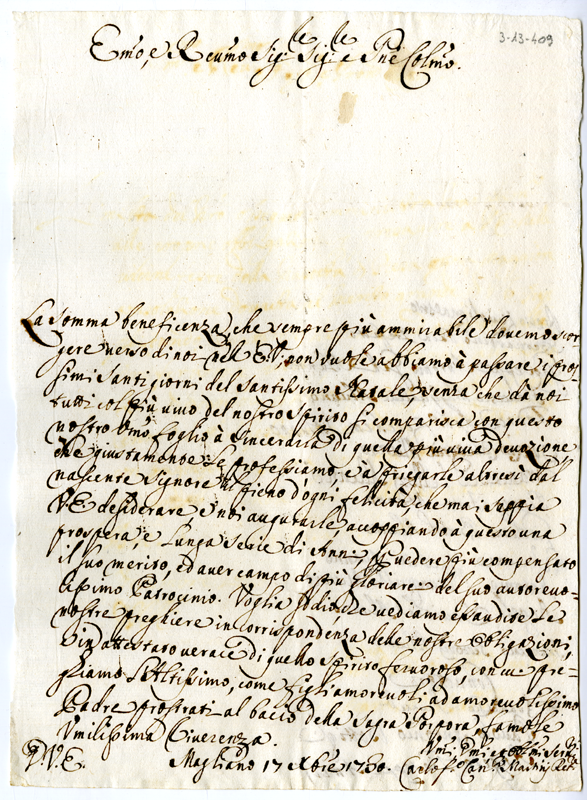 3-13-409
Emo, e Revmo Sigle Sigle e Pne Colmo.
La somma beneficenza, che sempre più ammirabile dovemo scor
gere verso di noi nell' E.V., non vuole abbiamo à passare i pros
simi santi giorni del santissimo Natale, senza che da noi
tutti col più vivo del nostro spirito si comparisca con questo
nostro foglio à sincerarla di quella più viva devozione
che giustamente Le professiamo, e a pregarle altresì dal
nascente Signore il pieno d'ogni felicità che mai seppia
V.E. desiderare e noi augurarle, accoppiando à questo una
prospera, e lunga serie di Anni, vedere più compensato
il suo merito, ed aver campo di più gloriare del suo autorevo=
lissimo Patrocinio. Voglia Iddio che vediamo esaudite Le
nostre preghiere in corrispondenza delle nostre Obligazioni,
in attestato verace di quello spirito fervoroso, con cui pre=
ghiamo l'Altissimo, come figli amorevoli ad amorevolissimo
Padre prostrati al bacio della Sagra Porpora, famole
Vmilissima Riverenza.
D.V.E. Magliano 17 Xbre 1730.
Carlo